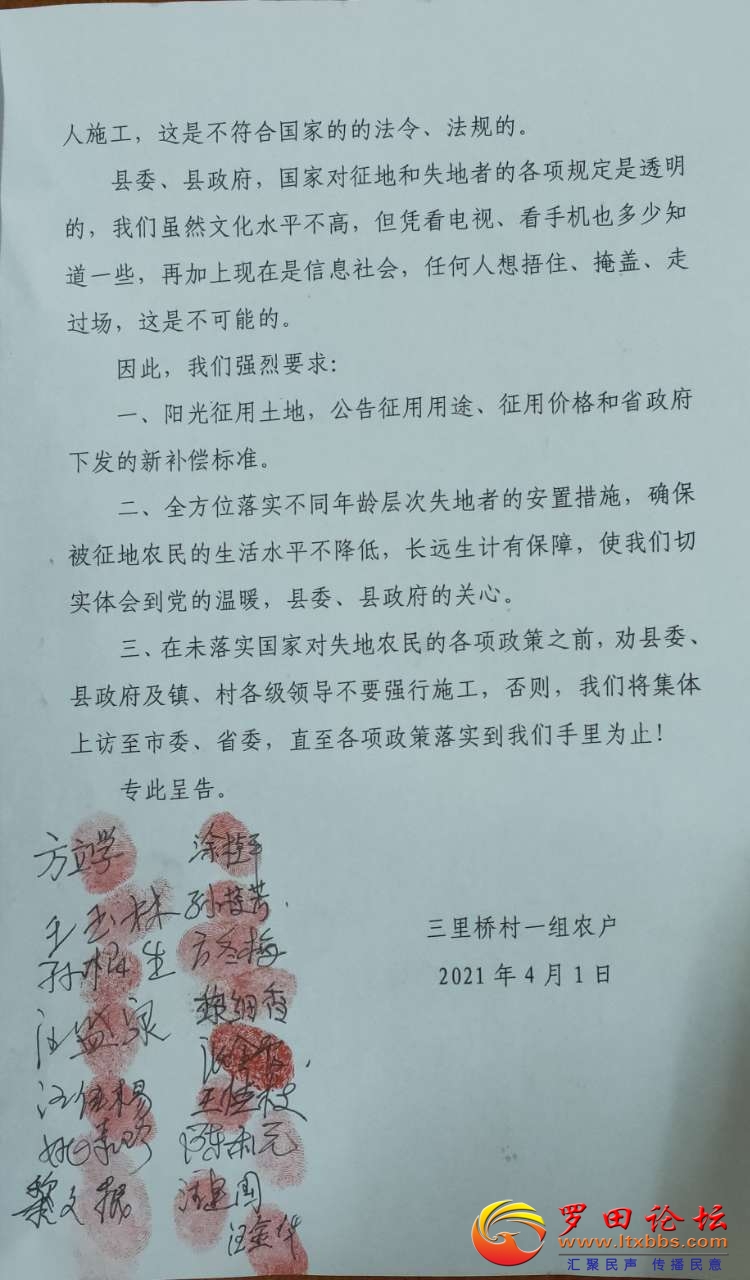 人施工，这是不符合国家的的法令、法规的。
县委、县政府，国家对征地和失地者的各项规定是透明
的，我们虽然文化水平不高，但凭看电视、看手机也多少知
道一些，再加上现在是信息社会，任何人想捂住、掩盖、走
过场，这是不可能的。
因此，我们强烈要求：
一、阳光征用土地，公告征用用途、征用价格和省政府
下发的新补偿标准。
二、全方位落实不同年龄层次失地者的安置措施，确保
被征地农民的生活水平不降低，长远生计有保障，使我们切
实体会到党的温暖，县委、县政府的关心。
三、在未落实国家对失地农民的各项政策之前，劝县委、
县政府及镇、村各级领导不要强行施工，否则，我们将集体
上访至市委、省委，直至各项政策落实到我们手里为止！
专此呈告。
方立学
王玉林
方冬梅
黎文
三里桥村一组农户
2021年4月1日
罗田论坛
www.ltxbbs.com
汇聚民声 传播民意